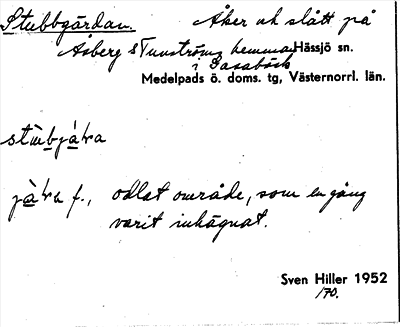 Stubbgärdan. Åker och slått på
Åsberg & Tunströms hemman Hässjö sn.
i Gasabäck
Medelpads ö. doms. tg, Västernorrl. län.
stùbjàṙa
jàṙa f., odlat område, som en gång
varit inhägnat.
Sven Hiller 1952
/70.